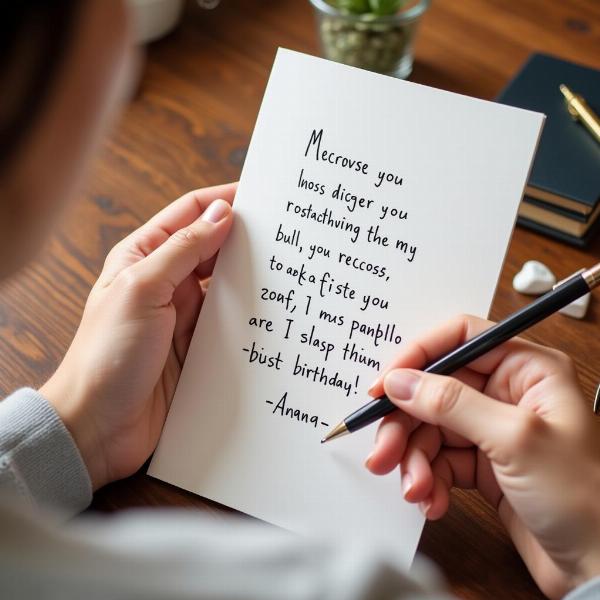 Mecrovse you
lnoss dicger you
rostacthving the my
bull, you reccoss,
to aska fiste you
zonf, I mus panpllo
are I slasp thum
-bist birthday!
-Anana-